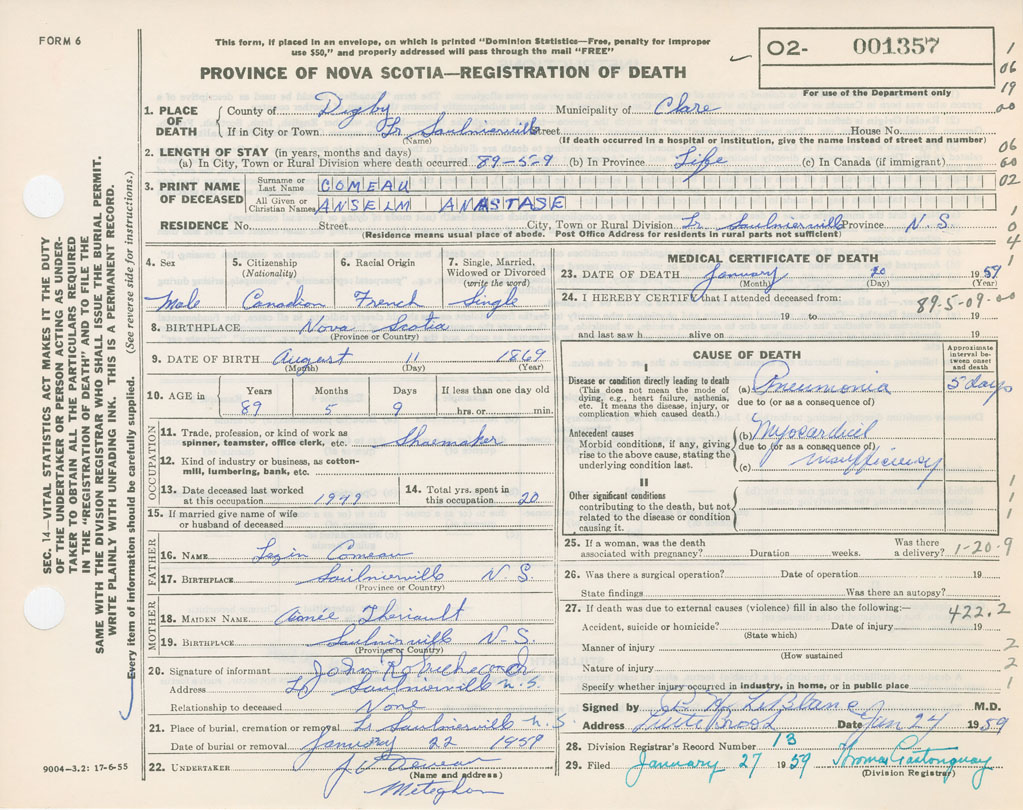 FORM 6
This form, if placed in an envelope, on which is printed "Dominion Statistics—Free, penalty for improper
use $50," and properly addressed will pass through the mail "FREE"
PROVINCE OF NOVA SCOTIA—REGISTRATION OF DEATH
02- 001357
For use of the Department only
1. PLACE OF DEATH County of Digby Municipality of Clare
If in City or Town Lr Saulnierville Street House No.
(Name) (If death occurred in a hospital or institution, give the name instead of street and number)
2. LENGTH OF STAY (in years, months and days)
(a) In City, Town or Rural Division where death occurred 89-5-9 (b) In Province Life (c) In Canada (if immigrant)
3. PRINT NAME OF DECEASED Surname or Last Name COMEAU
All Given or Christian Names ANSELM ANASTASE
RESIDENCE No. Street City, Town or Rural Division Lr Saulnierville Province N.S.
(Residence means usual place of abode. Post Office Address for residents in rural parts not sufficient)
4. Sex Male
5. Citizenship (Nationality) Canadian
6. Racial Origin French
7. Single, Married, Widowed or Divorced (write the word) Single
8. BIRTHPLACE Nova Scotia
(Province or Country)
9. DATE OF BIRTH August 11 1869
(Month) (Day) (Year)
10. AGE in Years Months Days If less than one day old
89 5 9 hrs. or min.
OCCUPATION
11. Trade, profession, or kind of work as spinner, teamster, office clerk, etc. Shoemaker
12. Kind of industry or business, as cotton-mill, lumbering, bank, etc.
13. Date deceased last worked at this occupation 1949
14. Total yrs. spent in this occupation 20
15. If married give name of wife or husband of deceased
FATHER
16. NAME Lezin Comeau
17. BIRTHPLACE Saulnierville N.S.
(Province or Country)
MOTHER
18. MAIDEN NAME Aimée Theriault
19. BIRTHPLACE Saulnierville N.S.
(Province or Country)
20. Signature of informant John Robicheau
Address Lr Saulnierville N.S.
Relationship to deceased None
21. Place of burial, cremation or removal Lr Saulnierville N.S.
Date of burial or removal January 22 1959
22. UNDERTAKER
(Name and address)
Meteghan
9004-3.2: 17-6-55
MEDICAL CERTIFICATE OF DEATH
23. DATE OF DEATH January 20 1959
(Month) (Day) (Year)
24. I HEREBY CERTIFY that I attended deceased from:
89-5-09-00
19 to 19
and last saw h alive on 19
CAUSE OF DEATH
Approximate interval between onset and death
I
Disease or condition directly leading to death
(This does not mean the mode of dying, e.g., heart failure, asthenia, etc. It means the disease, injury, or complication which caused death.)
(a) Pneumonia 5 days
due to (or as a consequence of)
Antecedent causes
Morbid conditions, if any, giving rise to the above cause, stating the underlying condition last.
(b) Myocardial
due to (or as a consequence of)
(c) insufficiency
II
Other significant conditions
contributing to the death, but not related to the disease or condition causing it.
25. If a woman, was the death associated with pregnancy? Duration weeks. Was there a delivery?
1-20-9
26. Was there a surgical operation? Date of operation 19
State findings Was there an autopsy?
27. If death was due to external causes (violence) fill in also the following:—
422.2
Accident, suicide or homicide? Date of injury 19
(State which)
Manner of injury 2
(How sustained)
Nature of injury 2
Specify whether injury occurred in industry, in home, or in public place 1
Signed by LeBlanc M.D.
Address Little Brook Date Jan 24 1959
28. Division Registrar's Record Number 13
29. Filed January 27 1959 Thomas Gastonguay
(Division Registrar)
1
06
19
00
06
60
02
1
0
4
1
1
1
1
SEC. 14—VITAL STATISTICS ACT MAKES IT THE DUTY
OF THE UNDERTAKER OR PERSON ACTING AS UNDER-
TAKER TO OBTAIN ALL THE PARTICULARS REQUIRED
IN THE "REGISTRATION OF DEATH" AND TO FILE THE
SAME WITH THE DIVISION REGISTRAR WHO SHALL ISSUE THE BURIAL PERMIT.
WRITE PLAINLY WITH UNFADING INK. THIS IS A PERMANENT RECORD.
Every item of information should be carefully supplied. (See reverse side for instructions.)